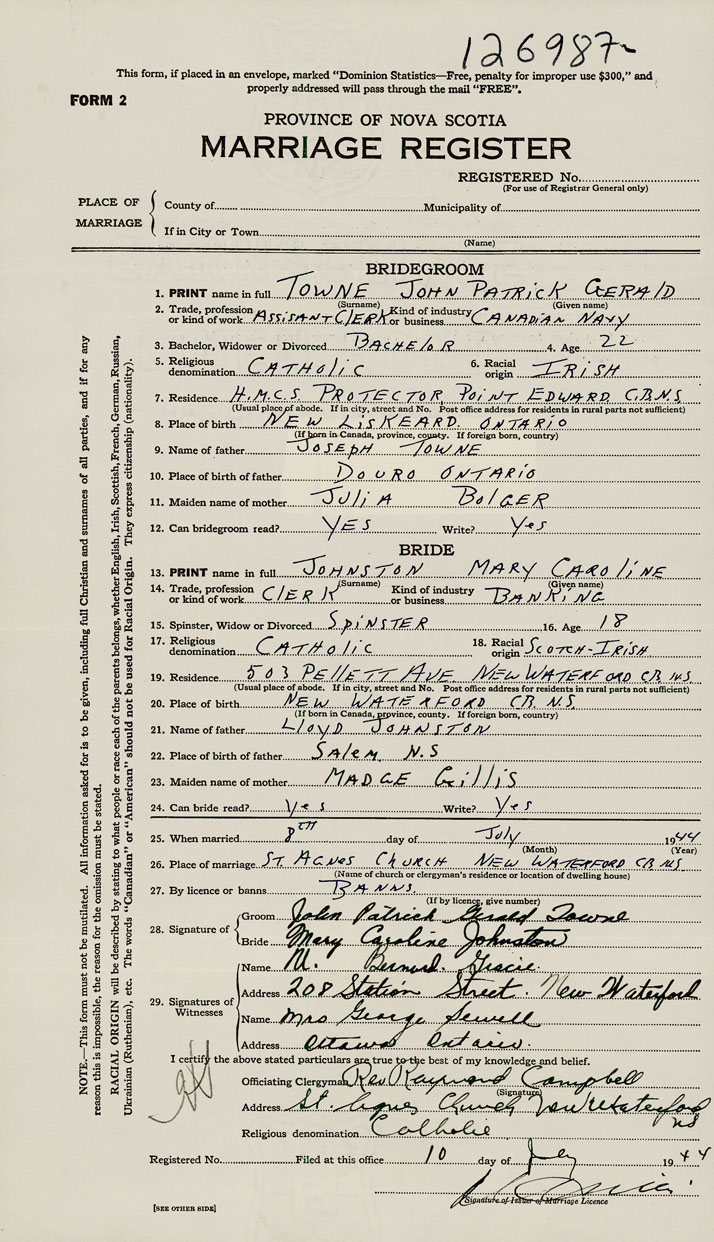 126987
This form, if placed in an envelope, marked "Dominion Statistics—Free, penalty for improper use $300," and
properly addressed will pass through the mail "FREE".
FORM 2
PROVINCE OF NOVA SCOTIA
MARRIAGE REGISTER
REGISTERED No.
(For use of Registrar General only)
PLACE OF MARRIAGE
County of Municipality of
If in City or Town
(Name)
BRIDEGROOM
1. PRINT name in full TOWNE JOHN PATRICK GERALD
(Surname) (Given name)
2. Trade, profession or kind of work ASSISANT CLERK Kind of industry or business CANADIAN NAVY
3. Bachelor, Widower or Divorced BACHELOR 4. Age 22
5. Religious denomination CATHOLIC 6. Racial origin IRISH
7. Residence H.M.C.S PROTECTOR POINT EDWARD C.B.N.S
(Usual place of abode. If in city, street and No. Post office address for residents in rural parts not sufficient)
8. Place of birth NEW LISKEARD ONTARIO
(If born in Canada, province, county. If foreign born, country)
9. Name of father JOSEPH TOWNE
10. Place of birth of father DOURO ONTARIO
11. Maiden name of mother JULIA BOLGER
12. Can bridegroom read? YES Write? Yes
BRIDE
13. PRINT name in full JOHNSTON MARY CAROLINE
(Surname) (Given name)
14. Trade, profession or kind of work CLERK Kind of industry or business BANKING
15. Spinster, Widow or Divorced SPINSTER 16. Age 18
17. Religious denomination CATHOLIC 18. Racial origin SCOTCH-IRISH
19. Residence 503 PELLETT AVE NEW WATERFORD CB. N.S
(Usual place of abode. If in city, street and No. Post office address for residents in rural parts not sufficient)
20. Place of birth NEW WATERFORD CB. N.S.
(If born in Canada, province, county. If foreign born, country)
21. Name of father LLOYD JOHNSTON
22. Place of birth of father SALEM N.S
23. Maiden name of mother MADGE GILLIS
24. Can bride read? Yes Write? Yes
25. When married 8TH day of July 1944
(Month) (Year)
26. Place of marriage ST. AGNES CHURCH NEW WATERFORD CB NS
(Name of church or clergyman's residence or location of dwelling house)
27. By licence or banns BANNS
(If by licence, give number)
28. Signature of Groom John Patrick Gerald Towne
Bride Mary Caroline Johnston
29. Signatures of Witnesses Name M. Bernard Gracie
Address 208 Station Street. New Waterford
Name Mrs George Sewell
Address Ottawa Ontario.
I certify the above stated particulars are true to the best of my knowledge and belief.
Officiating Clergyman Rev. Raymond Campbell
(Signature)
Address St. Agnes Church New Waterford
NS
Religious denomination Catholic
Registered No. Filed at this office 10 day of July 1944
Signature of Issuer of Marriage Licence
[SEE OTHER SIDE]
NOTE.—This form must not be mutilated. All information asked for is to be given, including full Christian and surnames of all parties, and if for any
reason this is impossible, the reason for the omission must be stated.
RACIAL ORIGIN will be described by stating to what people or race each of the parents belongs, whether English, Irish, Scottish, French, German, Russian,
Ukrainian (Ruthenian), etc. The words "Canadian" or "American" should not be used for Racial Origin. They express citizenship (nationality).